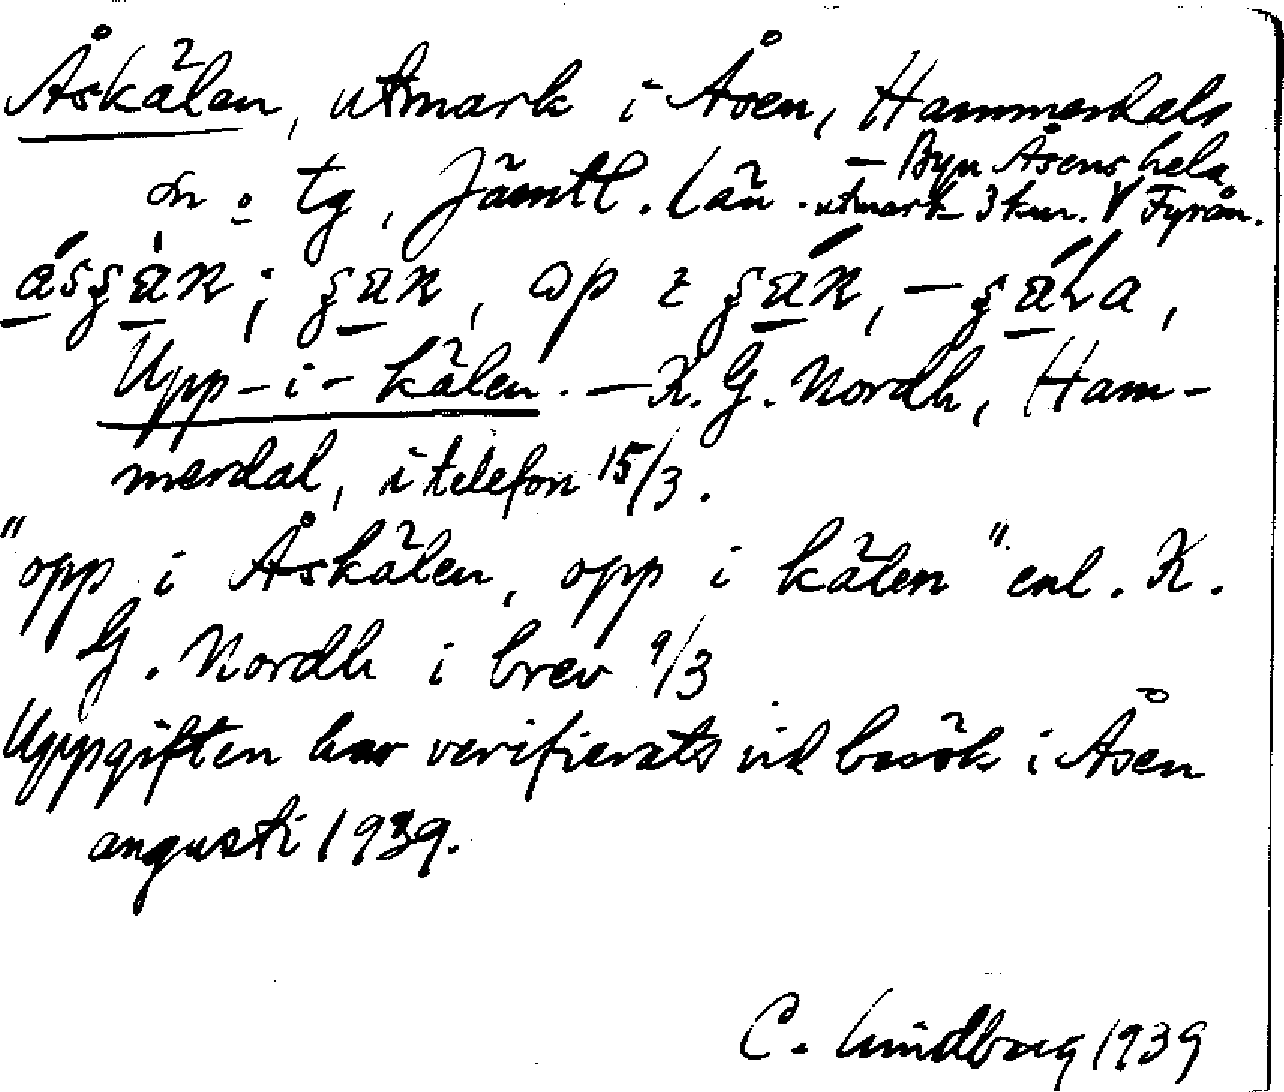 Åskälen, utmark i Åsen, Hammerdals
sn o tg, Jämtl. län. – Byn Åsens hela
utmark 3 km. V Fyrån.
Upp-i-kälen. – K. G. Nordh, Ham-
merdal, i telefon 15/3.
"opp i Åskälen, opp i kälen" enl. K.
G. Nordh i brev 9/3
Uppgiften har verifierats vid besök i Åsen
augusti 1939.
C. Lindberg 1939